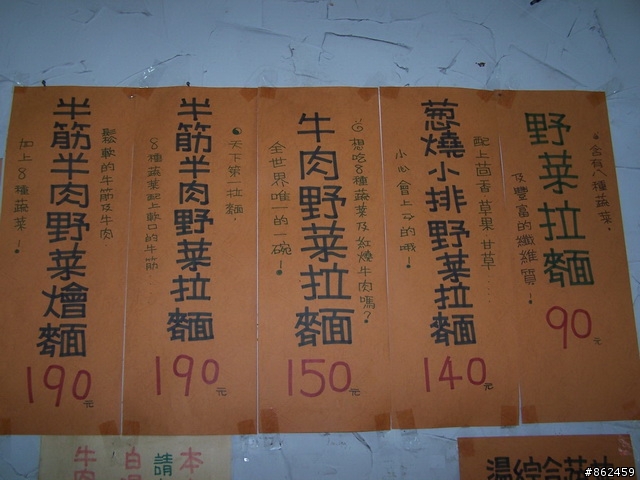 野菜拉麵
90元
含有八種蔬菜.
及豐富的纖維質!
蔥燒小排野菜拉麵
140元
配上茴香草果甘草......
小心會上ㄧㄣ的哦!
牛肉野菜拉麵
150元
想吃8種蔬菜及紅燒牛肉嗎?
全世界唯一的一碗!
半筋半肉野菜拉麵
190元
天下第一拉麵.
8種蔬菜配上軟口的牛筋
半筋半肉野菜燴麵
190元
鬆軟的牛筋及牛肉
加上8種蔬菜!
本
請
自
牛肉
湯綜合菇
#862459